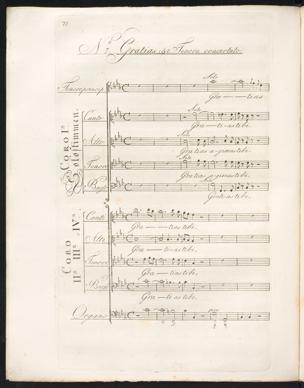 Gratias. Tenore concertato.
Solo
Gra — tias
CORO I.º
Solostimmen.
Canto
Solo
Gra — tias tibi
Alto
Solo
Gratias
Tenore
Solo
Gratias
Basso
Solo
Gratias tibi
CORO
II.º III.º IV.º
Canto
Gra — tias tibi
Alto
Gra — tias tibi
Tenore
Gra — tias tibi
Basso
Gra — tias tibi
Organo